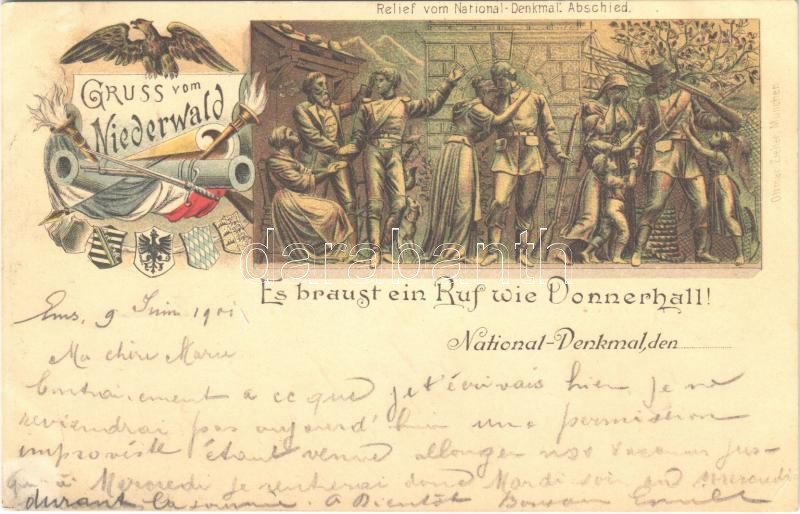 Relief vom National-Denkmal: Abschied.
GRUSS vom
Niederwald
Ottmar Zieher, München.
darabanth.com
Es braust ein Ruf wie Donnerhall!
National-Denkmal, den
Ems, 9 Juin 1901
Ma chère Marie
Contrairement a ce que je t'écrivais hier, je ne
reviendrai pas aujourd'hui une permission
improviste étant venue allonger nos vacances jus-
qu'à Mercredi je rentrerai donc Mardi soir ou mercredi
durant la A Bientôt Bonsoir